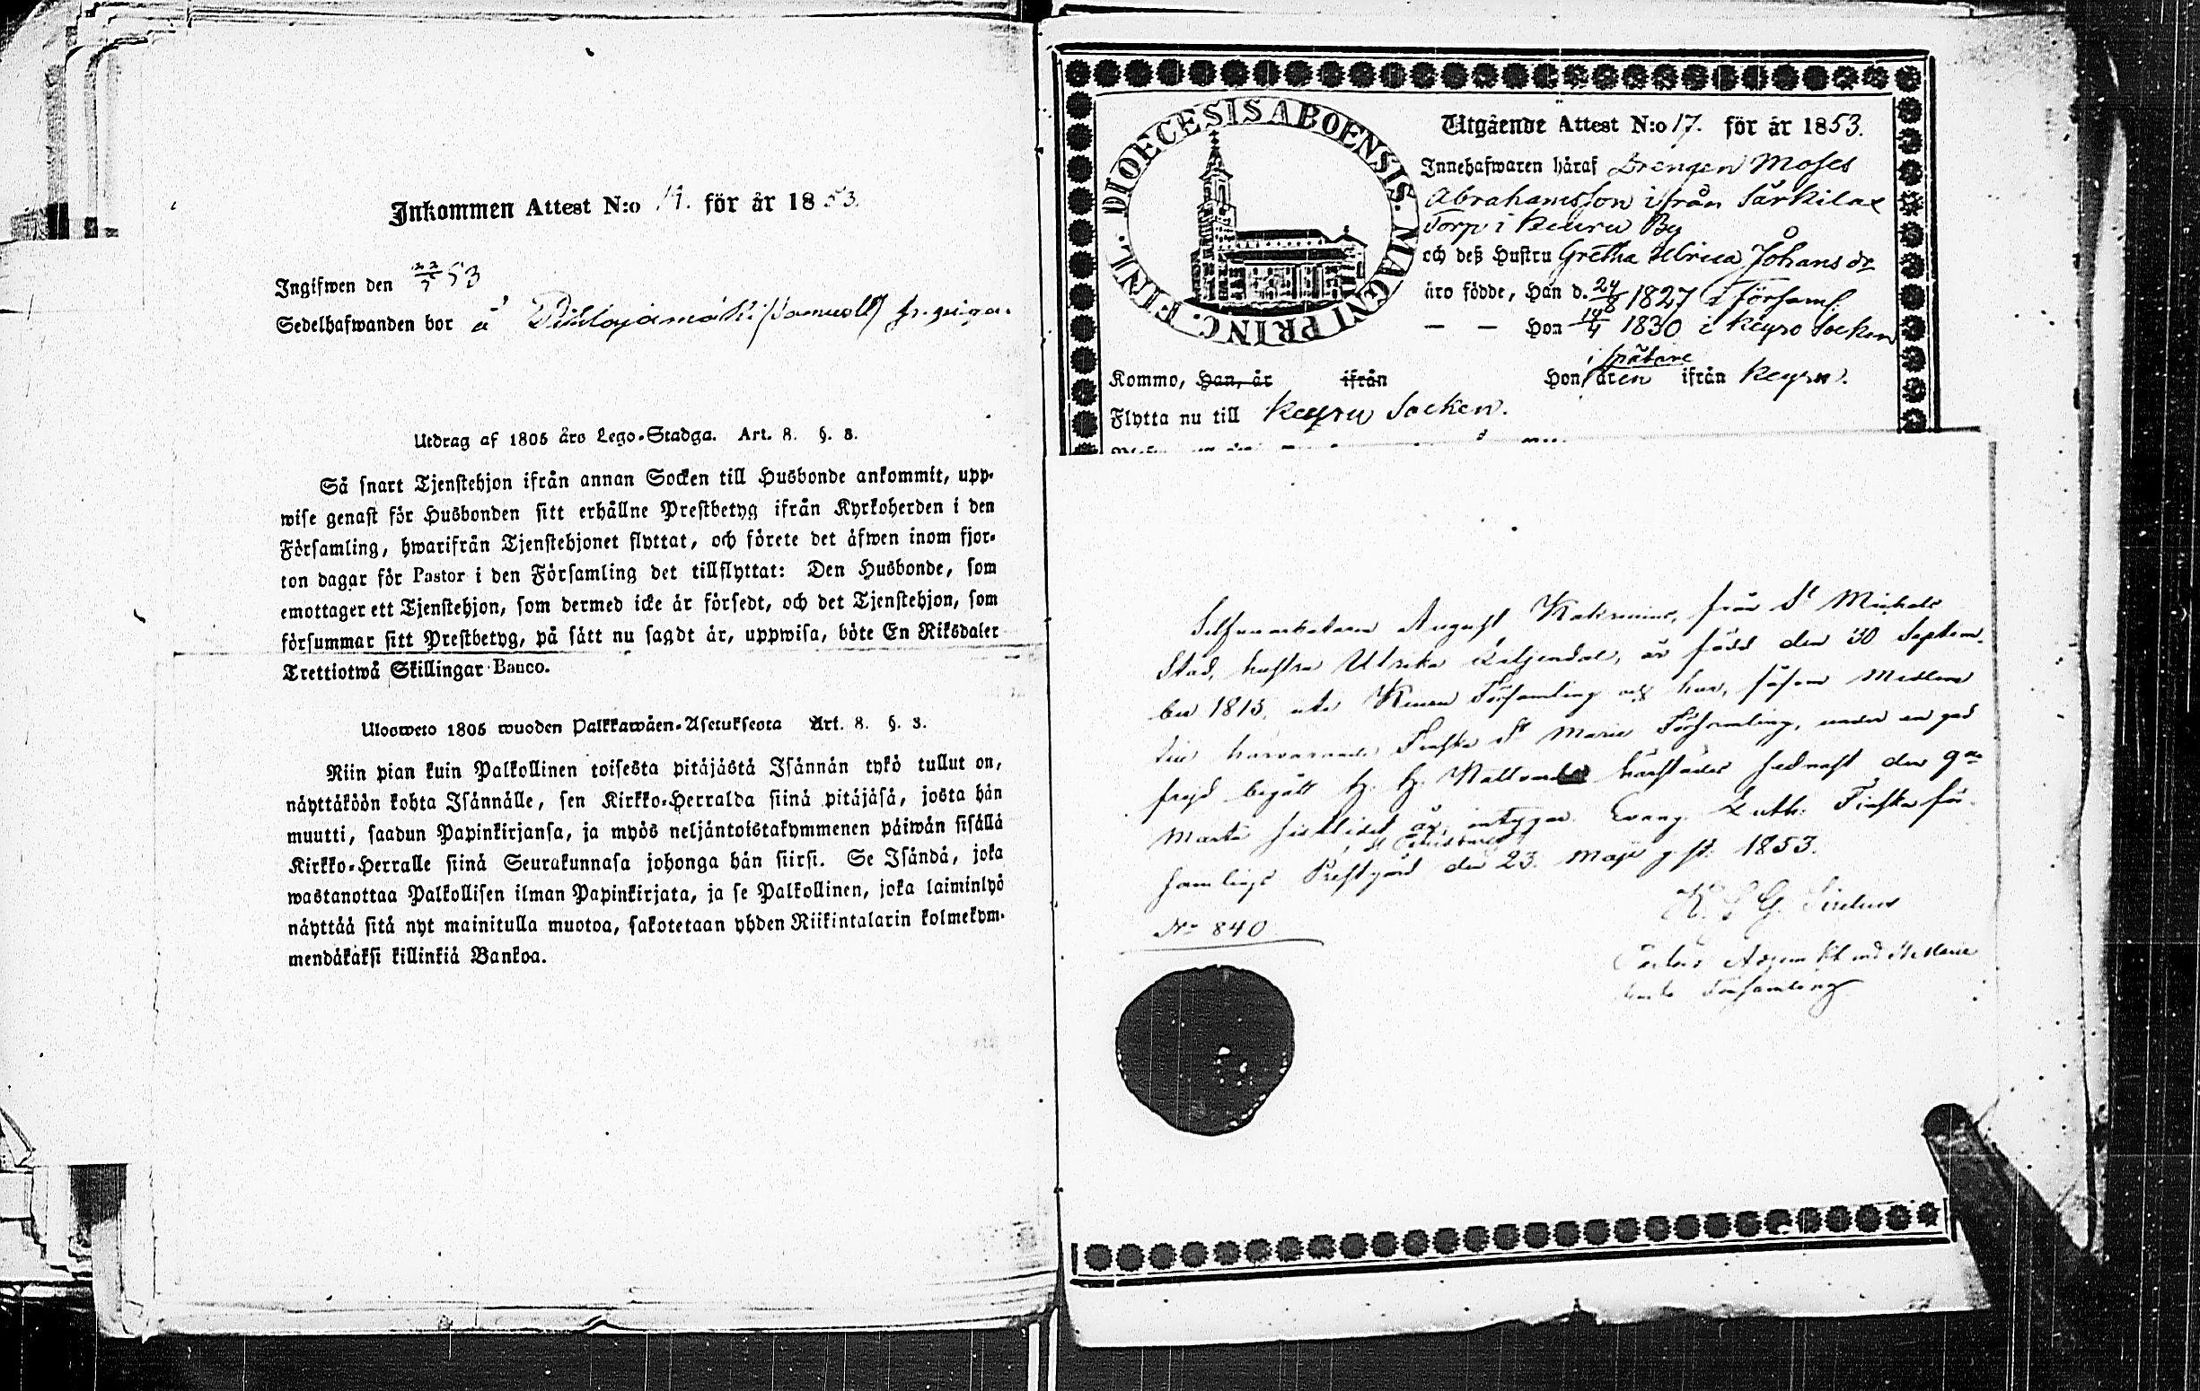 Inkommen Attest N:o 11. för år 1853.
Ingifwen den 22/7 53
Sedelhafwanden bor å
Utdrag af 1805 års Lego-Stadga. Art. 8. §. 3.
Så snart Tjenstehjon ifrån annan Socken till Husbonde ankommit, upp-
wise genast för Husbonden sitt erhållne Prestbetyg ifrån Kyrkoherden i den
Församling, hwarifrån Tjenstehjonet flyttat, och förete det äfwen inom fjor-
ton dagar för Pastor i den Församling det tillflyttat: Den Husbonde, som
emottager ett Tjenstehjon, som dermed icke är försedt, och det Tjenstehjon, som
försummar sitt Prestbetyg, på sätt nu sagdt är, uppwisa, böte En Riksdaler
Trettiotwå Skillingar Banco.
Ulosweto 1805 wuoden Palkkawäen-Asetuksesta Art. 8. §. 3.
Niin pian kuin Palkollinen toisesta pitäjästä Isännän tykö tullut on,
näyttäköön kohta Isännälle, sen Kirkko-Herralda siinä pitäjäsä, josta hän
muutti, saadun Papinkirjansa, ja myös neljäntoistakymmenen päiwän sisällä
Kirkko-Herralle siinä Seurakunnasa johonga hän siirsi. Se Isändä, joka
wastanottaa Palkollisen ilman Papinkirjata, ja se Palkollinen, joka laiminlyö
näyttää sitä nyt mainitulla muotoa, sakotetaan yhden Riikintalarin kolmekym-
mendäkaksi killinkiä Bankoa.
DIOECESIS ABOENSIS. MAGNI PRINC. FINL.
Utgående Attest N:o 17. för år 1853.
Innehafwaren häraf Drengen Moses
Abrahamsson ifrån Särkilax
Torp i Keuru By
och deß Hustru Gretha Ulrica Johans dr
äro födde, Han d. 24/8 1827 i Församl.
— — Hon 19/4 1830 i Keyro Socken
i spädare
Kommo, Han, är ifrån Hon åren ifrån Keyrö.
Flytta nu till Keyru Socken.
August från St Michels
Stad, hustru Ulrika Liljendal, är född den 30 Septem-
ber 1815, uti Församling och har, såsom Medlem
Finska St Marie Församling, under en god
frejd begått H. H. Nattvard härstädes sednast den 9de
Martii sistlidet år, intygar. Evang. Luth. Finska För-
samlings Prestgård den 23 Maji g. st. 1853.
No 840
Församling